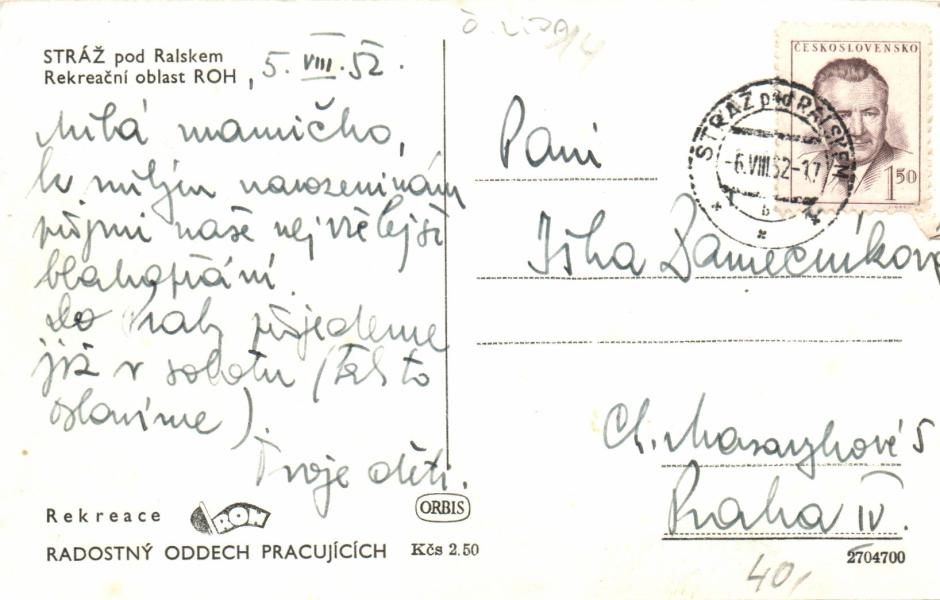 STRÁŽ pod Ralskem
Rekreační oblast ROH, 5. VIII. 52.
Milá mamičko,
k milým narozeninám
přijmi naše nejvřelejší
blahopřání.
Do Prahy přijedeme
již v sobotu (Tak to
oslavíme).
Tvoje děti.
Rekreace ROH
RADOSTNÝ ODDECH PRACUJÍCÍCH Kčs 2.50
ORBIS
ČESKOSLOVENSKO
1 50
STRÁŽ pod RALSKEM
-6.VIII.52-17
b
Paní
Jška Daněčníková
Ch. Masarykové 5
Praha IV.
2704700
40,